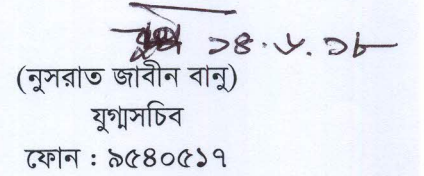 ১৪.৬.১৮
(নুসরাত জাবীন বানু)
যুগ্মসচিব
ফোন : ৯৫৪০৫১৭